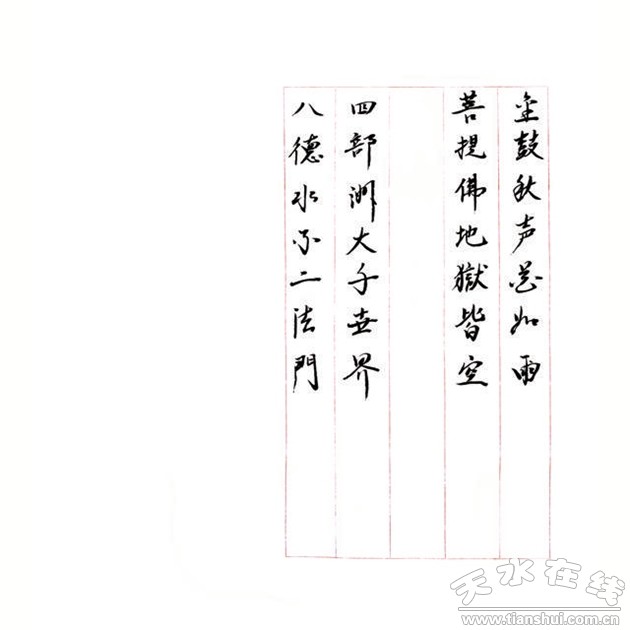 金鼓秋声茫如雨
菩提佛地獄皆空
四部洲大千世界
八德水不二法門
天水在线
www.tianshui.com.cn